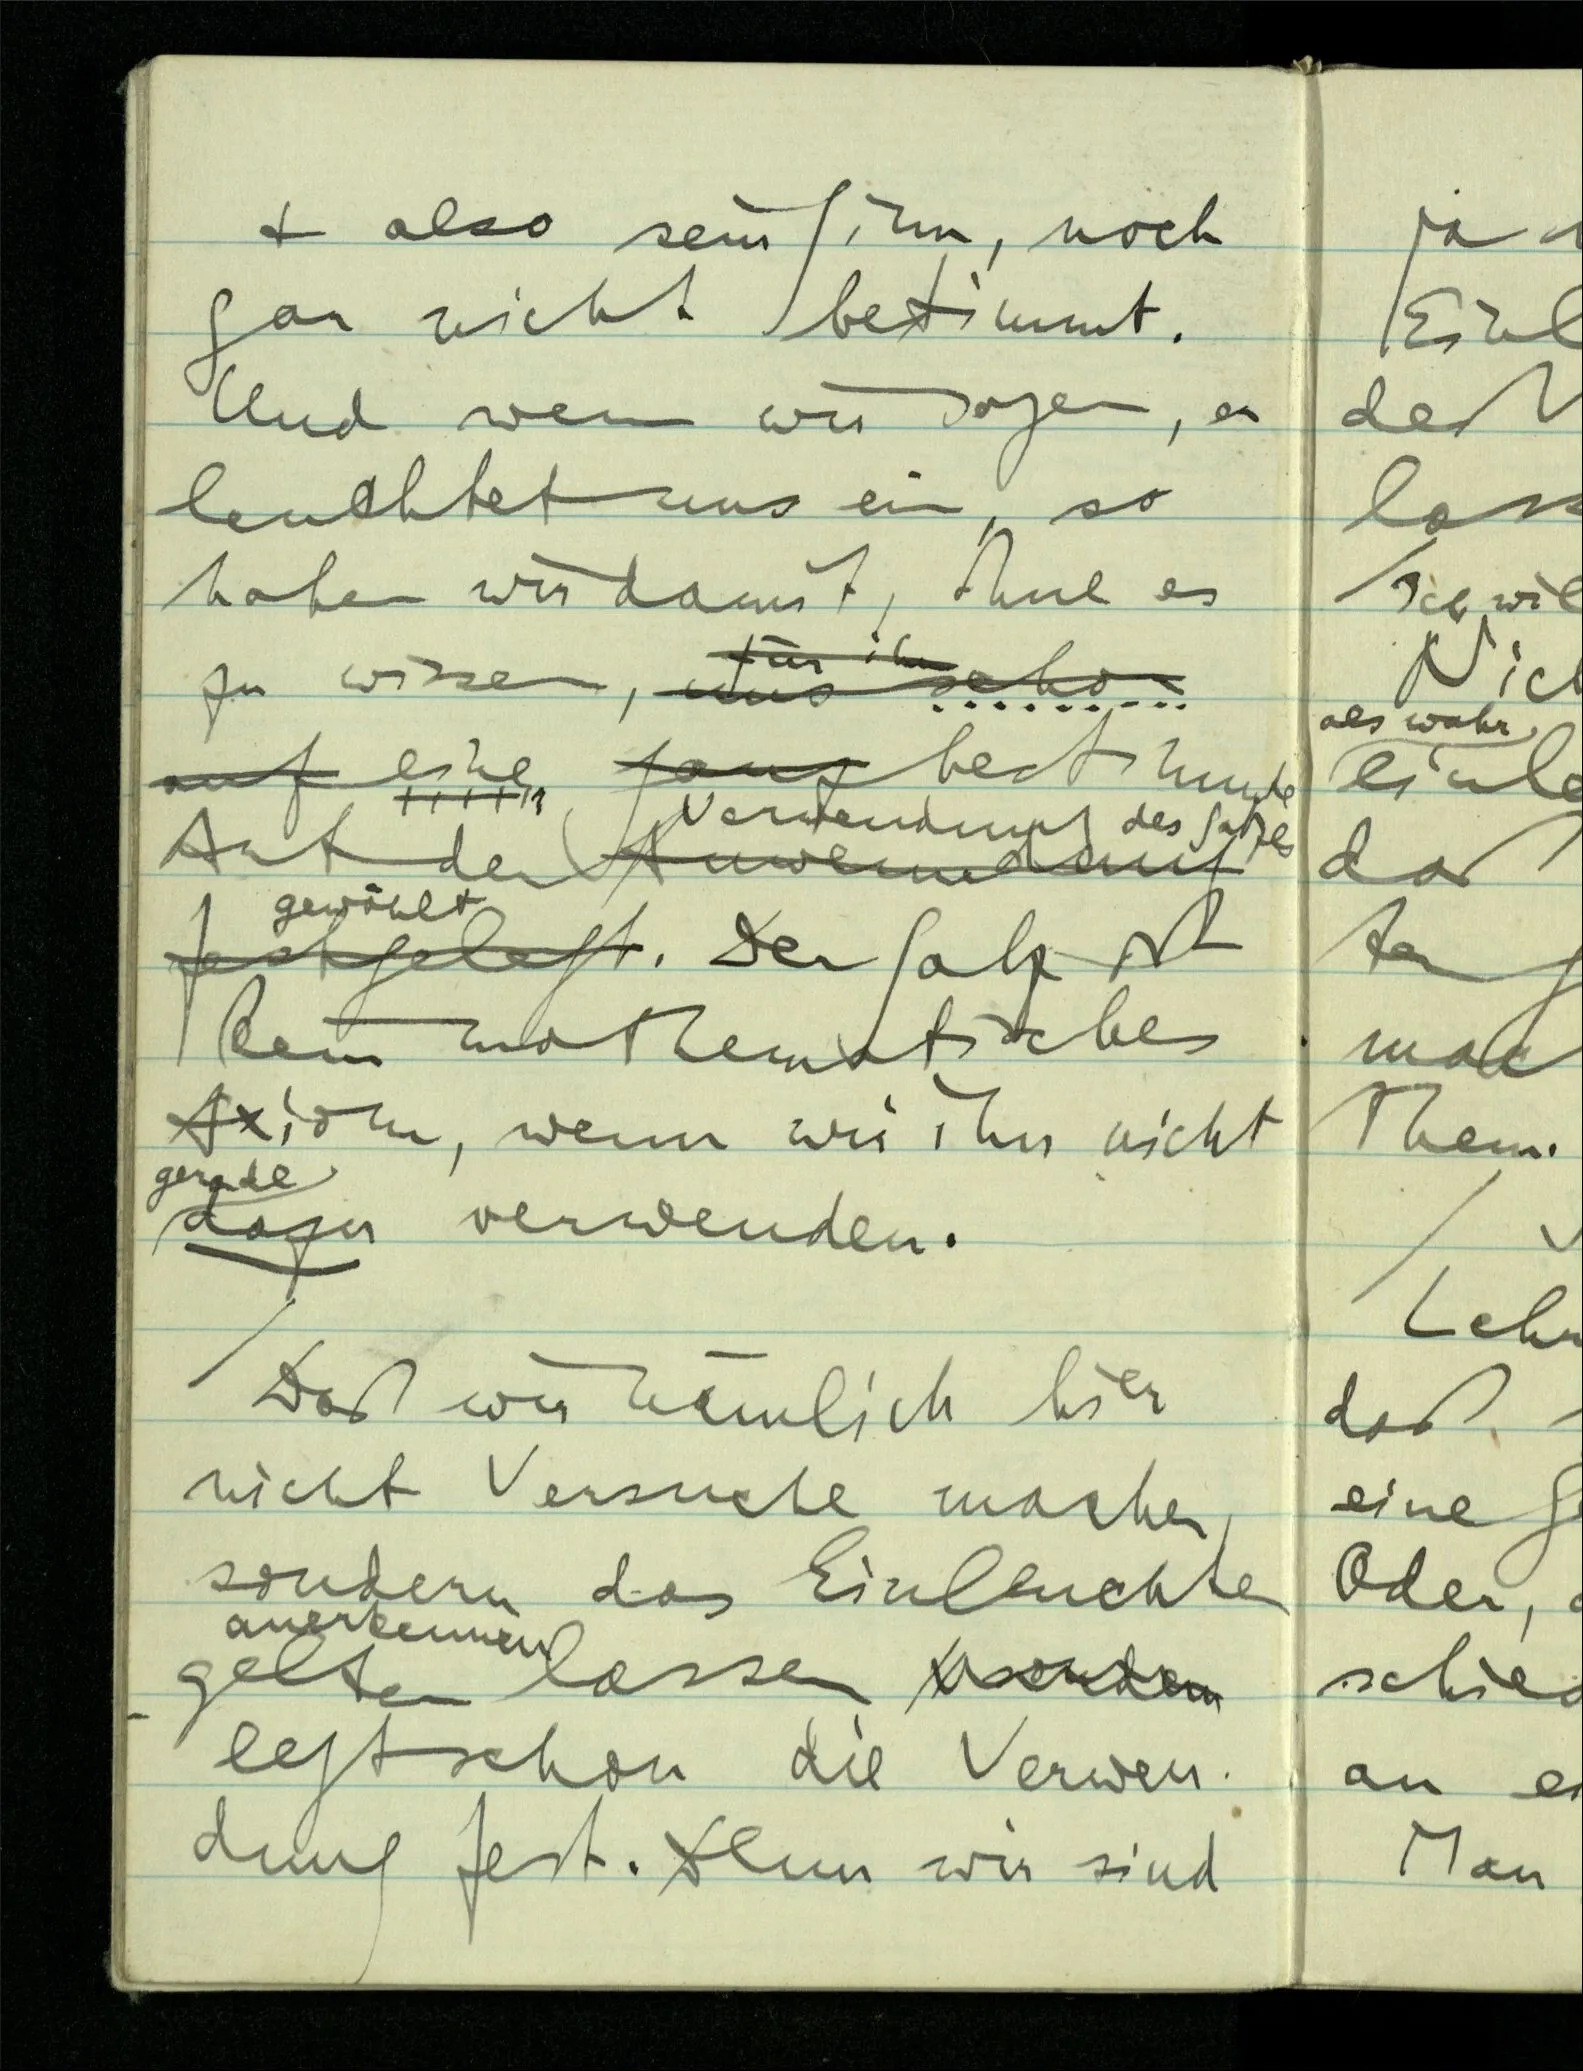 & also sein Sinn, noch
gar nicht bestimmt.
Und wenn wir sagen, er
leuchtet uns ein, so
haben wir damit, ohne es
zu wissen, uns schon
für ihn
auf eine ganz bestimmte
Art der Anwendung
Verwendung des Satzes
gewählt
festgelegt. Der Satz ist
kein mathematisches
Axiom, wenn wir ihn nicht
gerade
dazu verwenden.
/ Daß wir nämlich hier
nicht Versuche machen,
sondern das Einleuchten
anerkennen
gelten lassen
legt schon die Verwen-
dung fest. Denn wir sind
ja
Einl
der
lass
/ Ich wil
Nich
als wahr
einle
daß
ter
mac
Them.
/
Lehr
daß
eine Ge
Oder,
schied
an e
Man